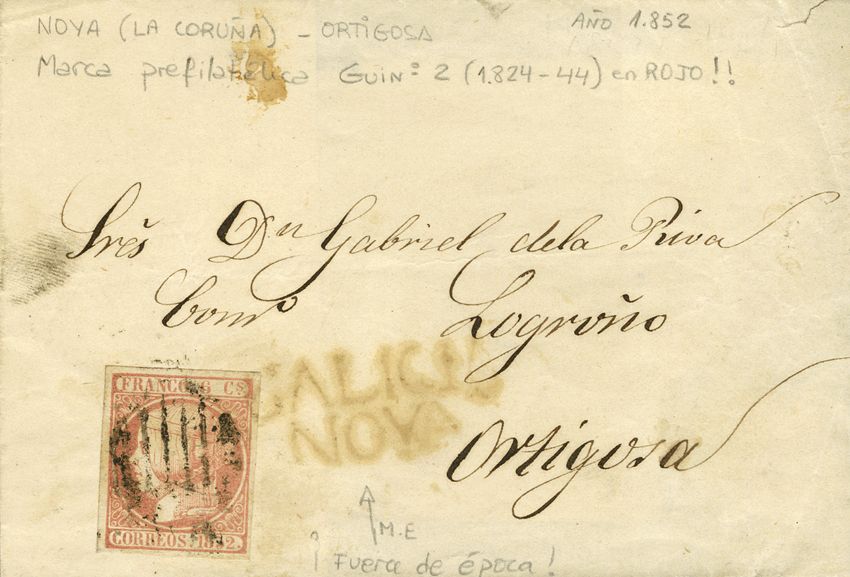 NOYA (LA CORUÑA) - ORTIGOSA
AÑO 1.852
Marca prefilatélica Guin: 2 (1.824-44) en ROJO!!
Srẽs Dn Gabriel dela Riva
Comº Logroño
GALICIA
NOYA
FRANCO 6 Cs
CORREOS 1852.
Ortigosa
M.E
¡Fuera de época!